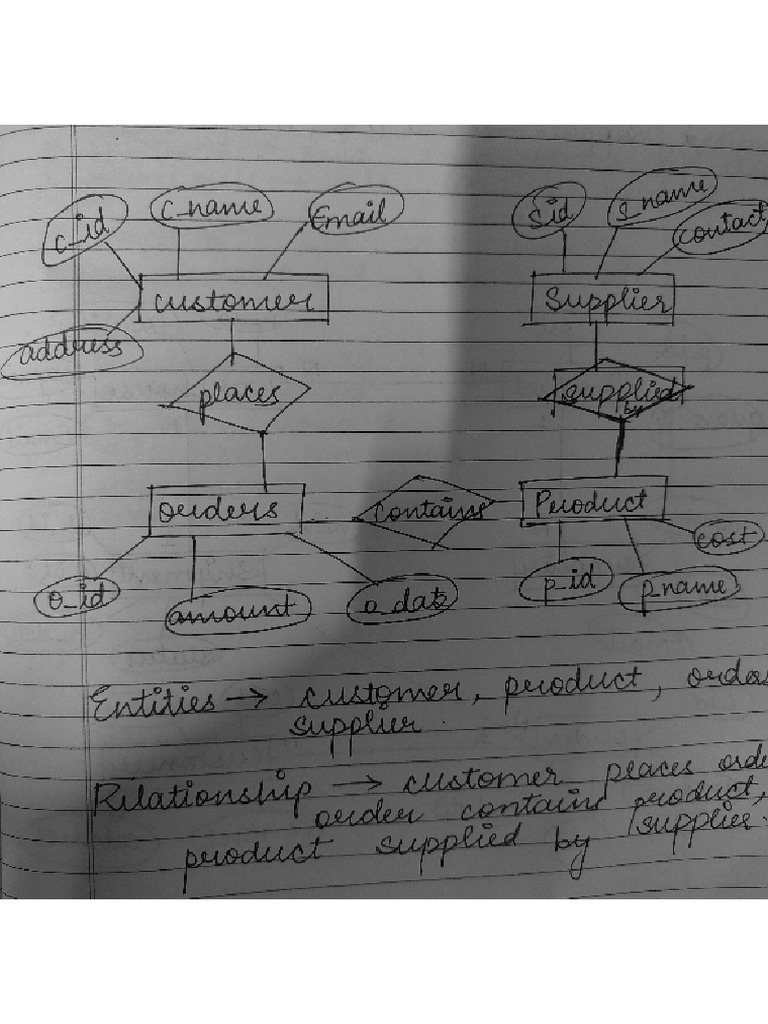 c_id c_name Email
S_id s_name contact
customer Supplier
address
places supplied by
orders contains Product
cost
o_id amount o_date p_id p_name
Entities → customer, product, orders
supplier.
Relationship → customer places orde
order contains product,
product supplied by supplier.